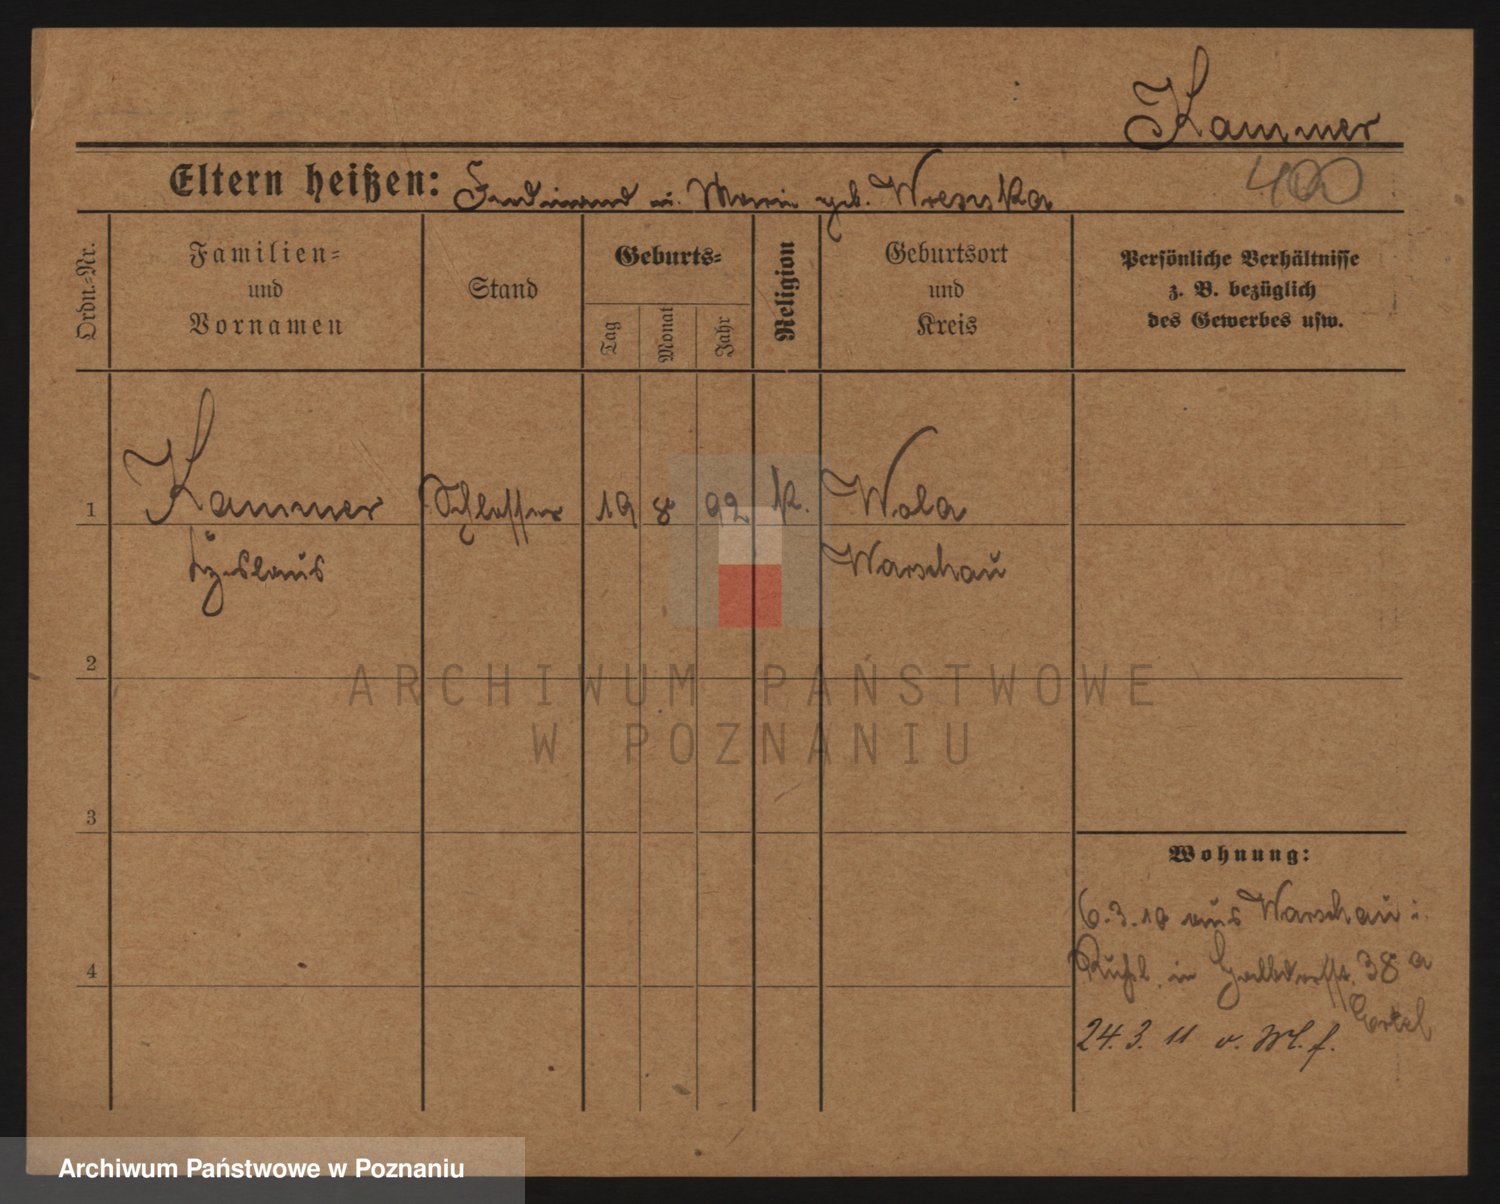 Kammer
400
Eltern heißen: Ferdinand u. Marie geb.
Ordn.-Nr.
Familien-
und
Vornamen
Stand
Geburts-
Tag
Monat
Jahr
Religion
Geburtsort
und
Kreis
Persönliche Verhältnisse
z. B. bezüglich
des Gewerbes usw.
1
Kammer
Schlosser
19
8
92
K.
Wola
Warschau
2
ARCHIWUM PAŃSTWOWE
W POZNANIU
3
Wohnung:
6.3.10 aus Warschau i.
in 38a
4
24.3.11 v.
Archiwum Państwowe w Poznaniu